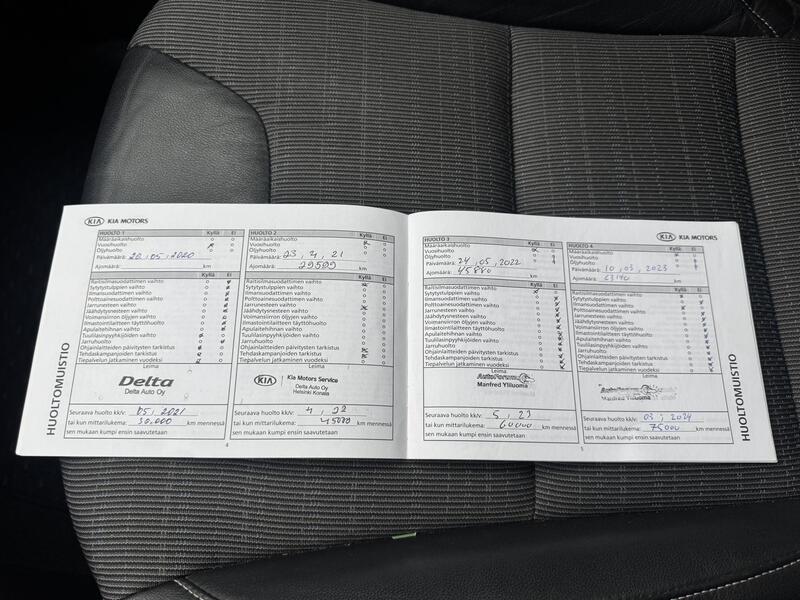 KIA KIA MOTORS
HUOLTO 1 Kyllä Ei
Määräaikaishuolto
Vuosihuolto
Öljyhuolto
Päivämäärä: 20.05.2020
Ajomäärä: km
Raitisilmasuodattimen vaihto
Sytytystulppien vaihto
Ilmansuodattimen vaihto
Polttoainesuodattimen vaihto
Jarrunesteen vaihto
Jäähdytysnesteen vaihto
Voimansiirron öljyjen vaihto
Ilmastointilaitteen täyttöhuolto
Apulaitehihnan vaihto
Tuulilasinpyyhkijöiden vaihto
Jarruhuolto
Ohjainlaitteiden päivitysten tarkistus
Tehdaskampanjoiden tarkistus
Tiepalvelun jatkaminen vuodeksi
Leima
Delta
Delta Auto Oy
Seuraava huolto kk/v: 05, 2021
tai kun mittarilukema: 30.000 km mennessä
sen mukaan kumpi ensin saavutetaan
HUOLTOMUISTIO
4
HUOLTO 2 Kyllä Ei
Määräaikaishuolto
Vuosihuolto
Öljyhuolto
Päivämäärä: 23, 4, 21
Ajomäärä: km
Raitisilmasuodattimen vaihto
Sytytystulppien vaihto
Ilmansuodattimen vaihto
Polttoainesuodattimen vaihto
Jarrunesteen vaihto
Jäähdytysnesteen vaihto
Voimansiirron öljyjen vaihto
Ilmastointilaitteen täyttöhuolto
Apulaitehihnan vaihto
Tuulilasinpyyhkijöiden vaihto
Jarruhuolto
Ohjainlaitteiden päivitysten tarkistus
Tehdaskampanjoiden tarkistus
Tiepalvelun jatkaminen vuodeksi
Leima
KIA Kia Motors Service
Delta Auto Oy
Helsinki Konala
Seuraava huolto kk/v: 4, 22
tai kun mittarilukema: 45000 km mennessä
sen mukaan kumpi ensin saavutetaan
KIA KIA MOTORS
HUOLTO 3 Kyllä Ei
Määräaikaishuolto
Vuosihuolto
Öljyhuolto
Päivämäärä: 24, 05, 2022
Ajomäärä: 45880 km
Raitisilmasuodattimen vaihto
Sytytystulppien vaihto
Ilmansuodattimen vaihto
Polttoainesuodattimen vaihto
Jarrunesteen vaihto
Jäähdytysnesteen vaihto
Voimansiirron öljyjen vaihto
Ilmastointilaitteen täyttöhuolto
Apulaitehihnan vaihto
Tuulilasinpyyhkijöiden vaihto
Jarruhuolto
Ohjainlaitteiden päivitysten tarkistus
Tehdaskampanjoiden tarkistus
Tiepalvelun jatkaminen vuodeksi
Leima
AutoForum
Manfred Yliluoma
Seuraava huolto kk/v: 5, 23
tai kun mittarilukema: 60000 km mennessä
sen mukaan kumpi ensin saavutetaan
5
HUOLTO 4 Kyllä Ei
Määräaikaishuolto
Vuosihuolto
Öljyhuolto
Päivämäärä: 10, 03, 2023
Ajomäärä: 63140 km
Raitisilmasuodattimen vaihto
Sytytystulppien vaihto
Ilmansuodattimen vaihto
Polttoainesuodattimen vaihto
Jarrunesteen vaihto
Jäähdytysnesteen vaihto
Voimansiirron öljyjen vaihto
Ilmastointilaitteen täyttöhuolto
Apulaitehihnan vaihto
Tuulilasinpyyhkijöiden vaihto
Jarruhuolto
Ohjainlaitteiden päivitysten tarkistus
Tehdaskampanjoiden tarkistus
Tiepalvelun jatkaminen vuodeksi
Leima
AutoForum
Manfred Yliluoma
Seuraava huolto kk/v: 03, 2024
tai kun mittarilukema: 75000 km mennessä
sen mukaan kumpi ensin saavutetaan
HUOLTOMUISTIO